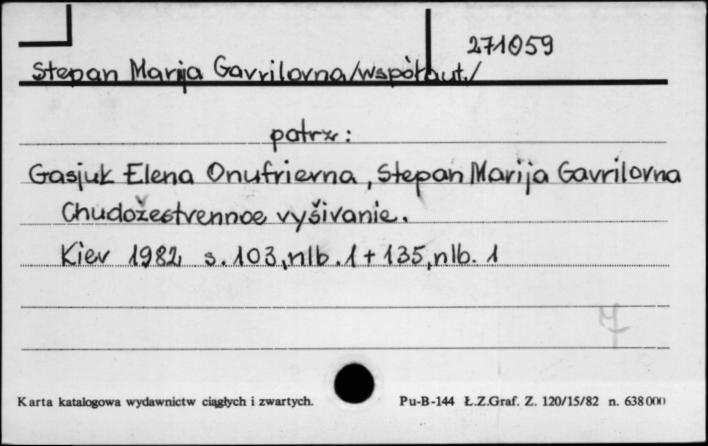 271059
Stepan Marija Gavrilovna/współaut./
patrz:
Gasjuk Elena Onufrievna, Stepan Marija Gavrilovna
Chudožestvennoe vyšivanie.
Kiev 1982, s. 103, nlb. 1 + 135, nlb. 1
Karta katalogowa wydawnictw ciągłych i zwartych. Pu-B-144 Ł.Z.Graf. Z. 120/15/82 n. 638000